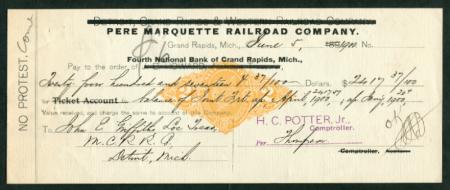 DETROIT, GRAND RAPIDS & WESTERN RAILROAD COMPANY.
PERE MARQUETTE RAILROAD COMPANY.
Grand Rapids, Mich., June 5, 1900 No.
Fourth National Bank of Grand Rapids, Mich.,
Pay to the order of
Twenty four hundred and seventeen & 37/100 Dollars. $2417 37/100
Ticket Account
balance of April, 1900,
Value received, and charge the same to account of this Company.
To John E Griffiths Loc Treas,
M. C. R. R.
Detroit, Mich.
H. C. POTTER, Jr.,
Comptroller.
Per Thompson
Comptroller,
O.K.
NO PROTEST.